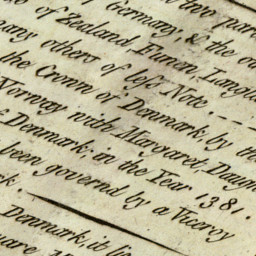 two par
of Germany, & the
s of Zealand, Funen, Langla
any others of less Note.
the Crown of Denmark, by the
Norway with Margaret, Daug
Denmark, in the Year 1381.
been governd by a Viceroy
rk.
Denmark, it
are